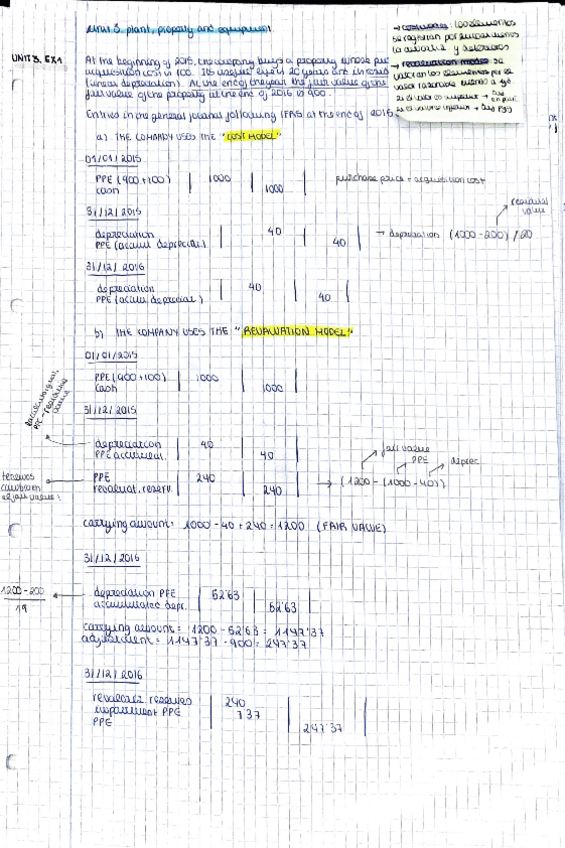 Unit 3. plant, property and equipment
UNIT 3. EX1
At the beginning of 2015, the company buys a property whose
acquisition cost is 100. Its useful life is 20 years and its
(linear depreciation). At the end of the year the fair value of the
fair value of the property at the end of 2016 is 900.
Entries in the general journal following IFRS at the end of 2016
→ cost model: los elementos
se registran por su
la amortiz y deterioros
→ revaluation model: se
valoran los elementos por su
valor razonable
a) THE COMPANY USES THE "COST MODEL"
01/01/2015
PPE (900+100) 1000
cash 1000
purchase price + acquisition cost
31/12/2015
depreciation 40
PPE (accum depreciat.) 40
→ depreciation (1000-200)/20
residual value
31/12/2016
depreciation 40
PPE (accum depreciat.) 40
b) THE COMPANY USES THE "REVALUATION MODEL"
01/01/2015
PPE (900+100) 1000
cash 1000
31/12/2015
PPE - residual
value
depreciation 40
PPE accumulat. 40
tenemos
cambiar
el fair value!
PPE 240
revaluat. reserv. 240
→ (1200 - (1000-40))
fair value
PPE
deprec
carrying amount: 1000 - 40 + 240 = 1200 (FAIR VALUE)
31/12/2016
1200-200
19
depreciation PPE 52'63
accumulated depr. 52'63
carrying amount = 1200 - 52'63 = 1147'37
adjustment = 1147'37 - 900 = 247'37
31/12/2016
revaluat. reserves 240
impairment PPE 7'37
PPE 247'37